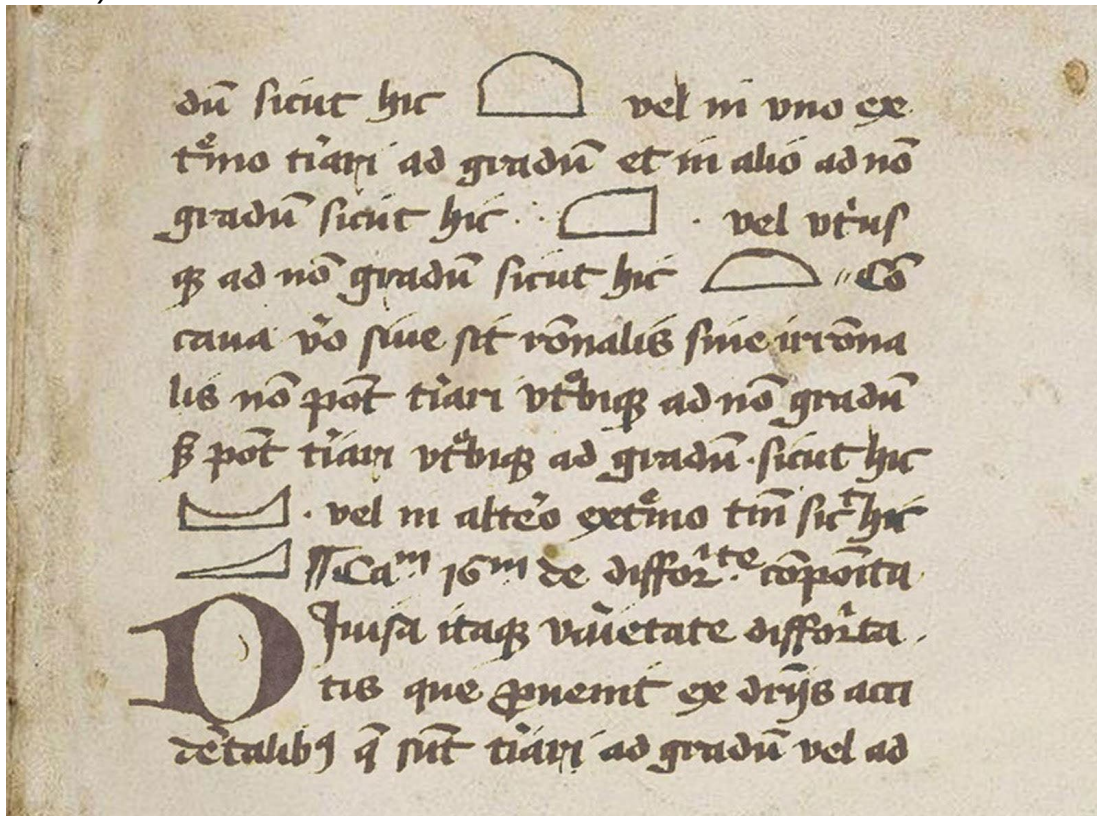 dū sicut hic vel in vno ex
t͛mo t͛iari ad gradū et in alio ad nō
gradū sicut hic vel vt͛us
qꝫ ad nō gradū sicut hic Cō
caua v͛o siue sit rōnalis siue irrōna
lis nō pōt t͛iari vt͛biqꝫ ad nō gradū
ꝫ pōt t͛iari vt͛biqꝫ ad gradū sicut hic
vel in alt͛o ext͛mo tm̄ sic͛ hic
¶ Caᵐ 16ᵐ de diffor͛ᵗᵉ cōpōita
Diuisa itaqꝫ vni͛etate diffor͛ta
tis que ꝓuenit ex dr̄ijs acci
dētalibꝰ q̄ sūt t͛iari ad gradū vel ad